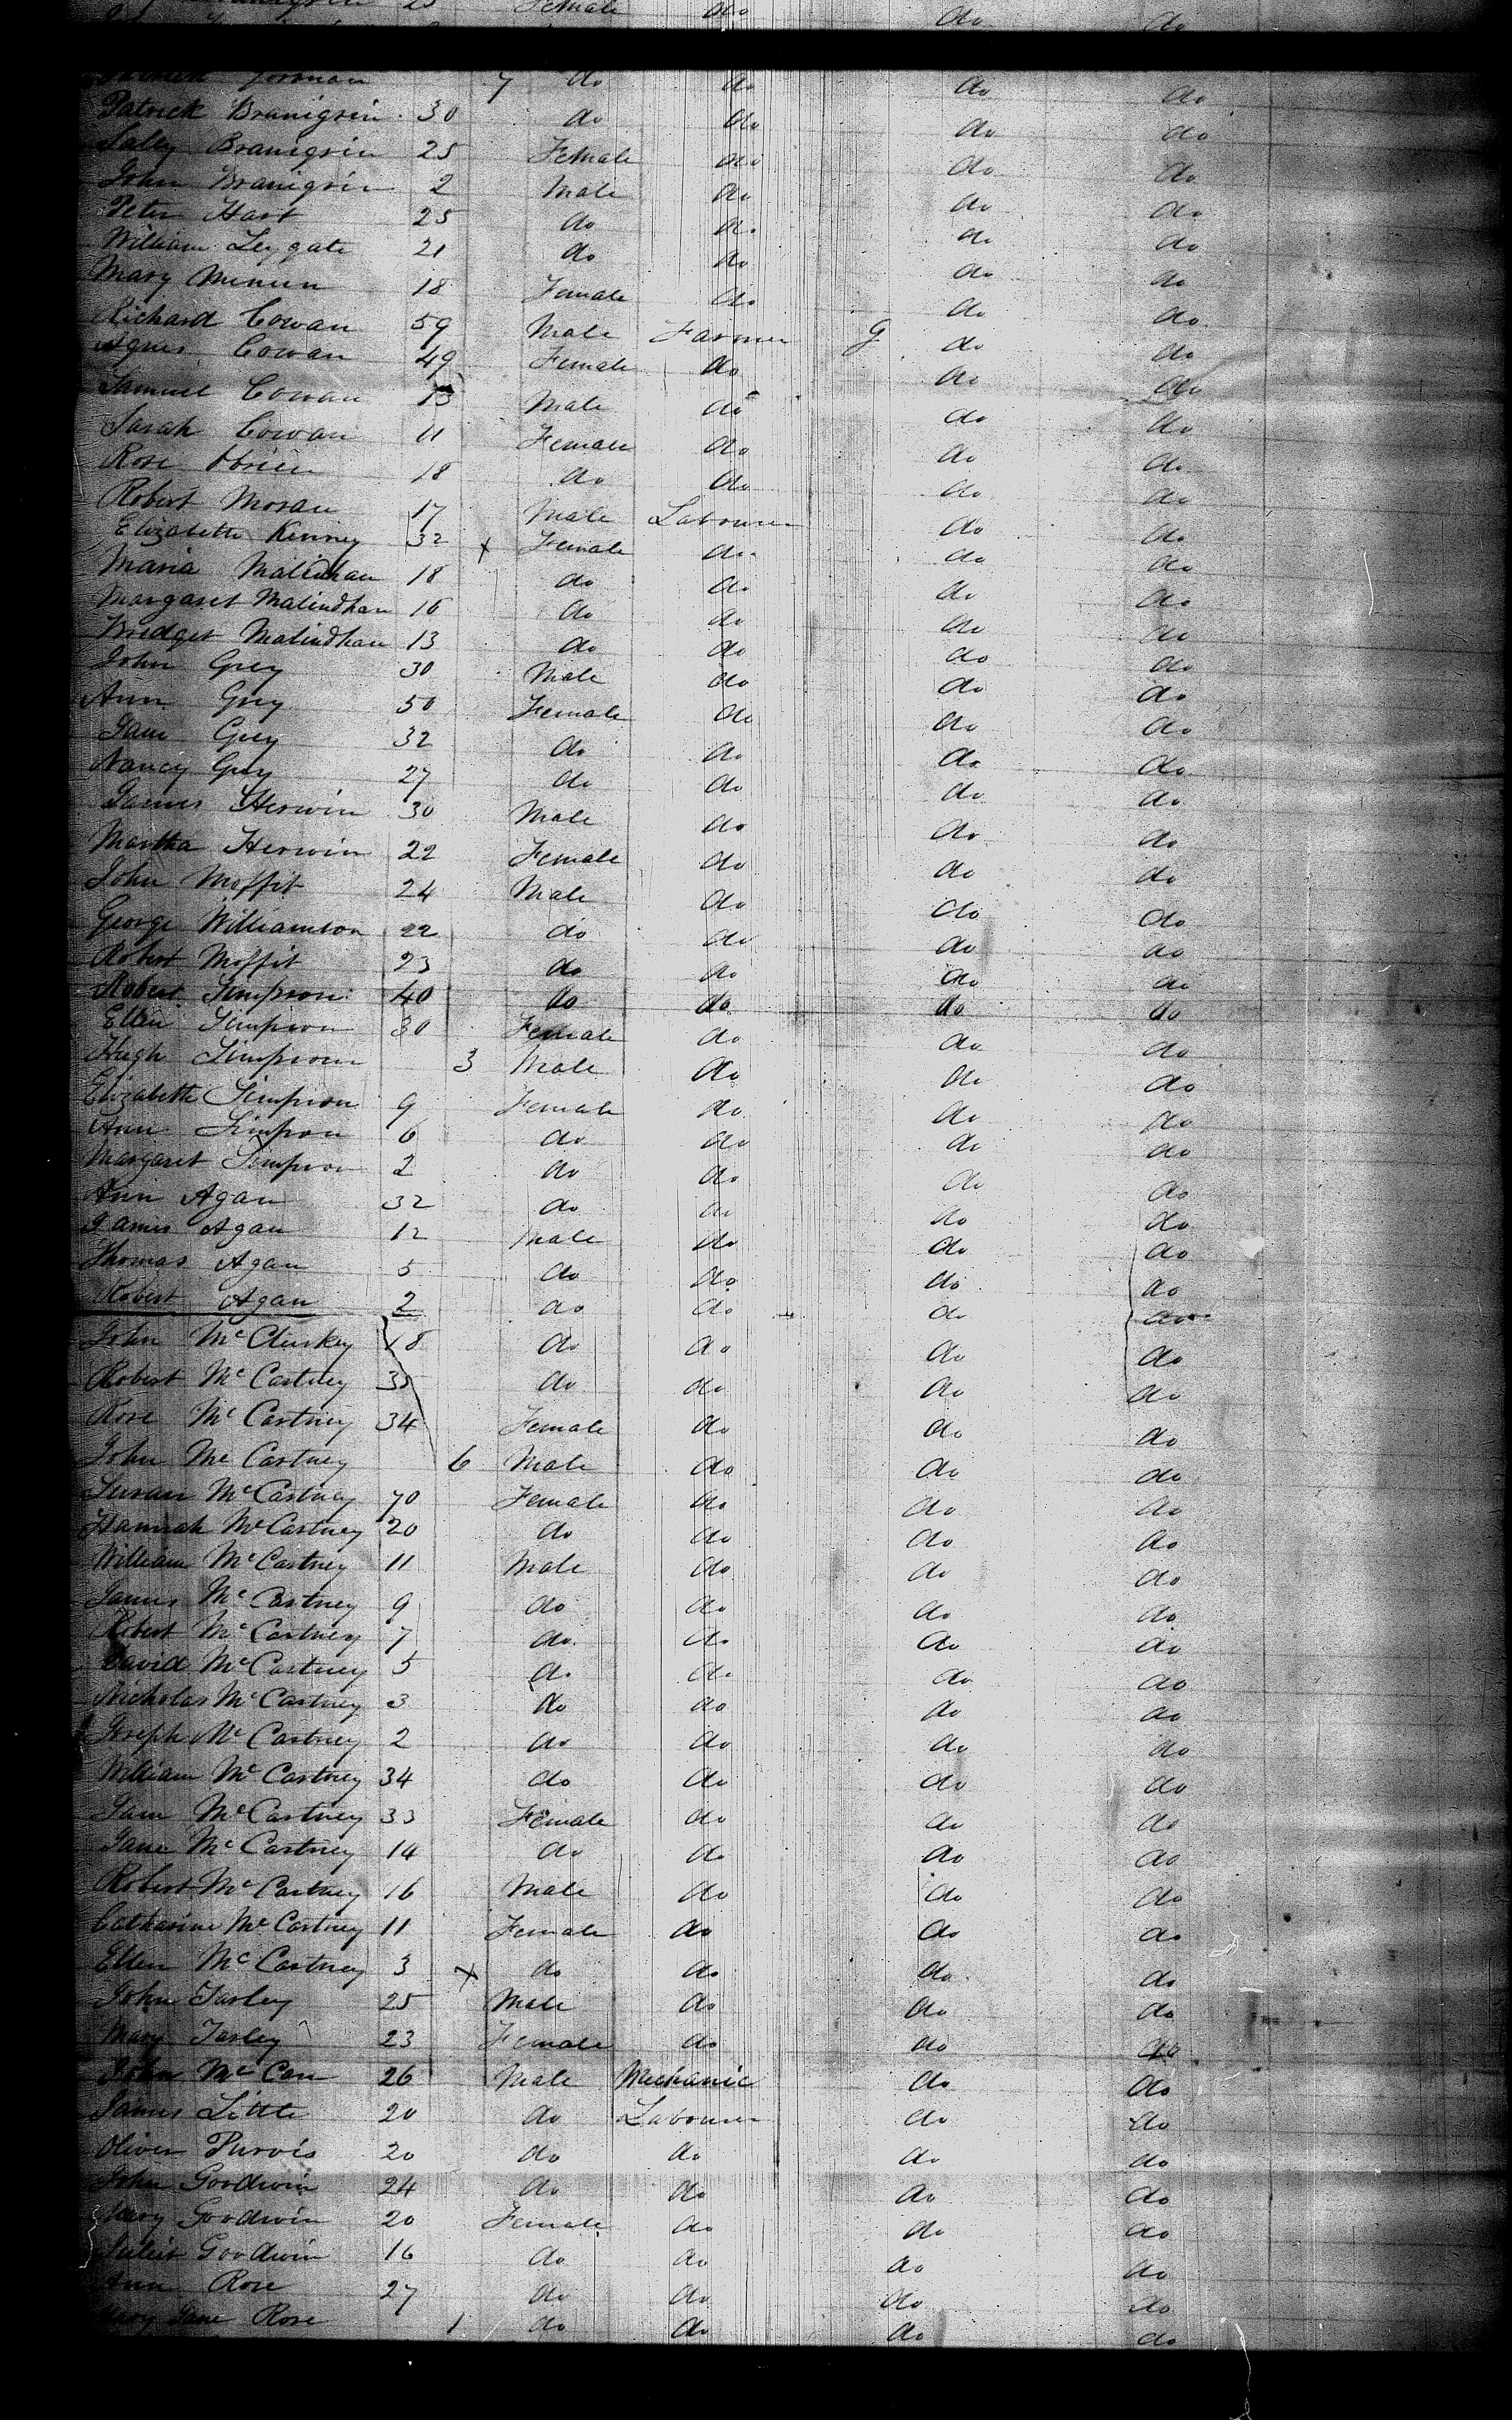 25 Female do do do
Gorman 7 do do do do
Patrick Branigrin 30 do do do do
Sally Branigrin 25 Female do do do
John Branigrin 2 Male do do do
Peter Hart 25 do do do do
William Leygate 21 do do do do
Mary 18 Female do do do
Richard Cowan 59 Male Farmer G do do
Agnes Cowan 49 Female do do do
Samuel Cowan 13 Male do do do
Sarah Cowan 11 Female do do do
Rose Obrien 18 do do do do
Robert Moran 17 Male Labourer do do
Elizabeth Kenney 32 x Female do do do
Maria Malindhan 18 do do do do
Margaret Malindhan 16 do do do do
Bridget Malindhan 13 do do do do
John Grey 30 Male do do do
Ann Grey 50 Female do do do
Jane Grey 32 do do do do
Nancy Grey 27 do do do do
James Herwin 30 Male do do do
Martha Herwin 22 Female do do do
John Moffit 24 Male do do do
George Williamson 22 do do do do
Robert Moffit 23 do do do do
Robert Simpson 40 do do do do
Ellen Simpson 30 Female do do do
Hugh Simpson 3 Male do do do
Elizabeth Simpson 9 Female do do do
Ann Simpson 6 do do do do
Margaret Simpson 2 do do do do
Ann Agan 32 do do do do
James Agan 12 Male do do do
Thomas Agan 5 do do do do
Robert Agan 2 do do do do
John McCluskey 18 do do do do
Robert McCartney 35 do do do do
Rose McCartney 34 Female do do do
John McCartney 6 Male do do do
Susan McCartney 70 Female do do do
Hannah McCartney 20 do do do do
William McCartney 11 Male do do do
James McCartney 9 do do do do
Robert McCartney 7 do do do do
David McCartney 5 do do do do
Nicholas McCartney 3 do do do do
Joseph McCartney 2 do do do do
William McCartney 34 do do do do
Jane McCartney 33 Female do do do
Jane McCartney 14 do do do do
Robert McCartney 16 Male do do do
Catharine McCartney 11 Female do do do
Ellen McCartney 3 x do do do do
John Farley 25 Male do do do
Mary Farley 23 Female do do do
John McCan 26 Male Mechanic do do
James Little 20 do Labourer do do
Oliver Purvis 20 do do do do
John Goodwin 24 do do do do
Mary Goodwin 20 Female do do do
Goodwin 16 do do do do
Ann Rose 27 do do do do
Mary Jane Rose 1 do do do do